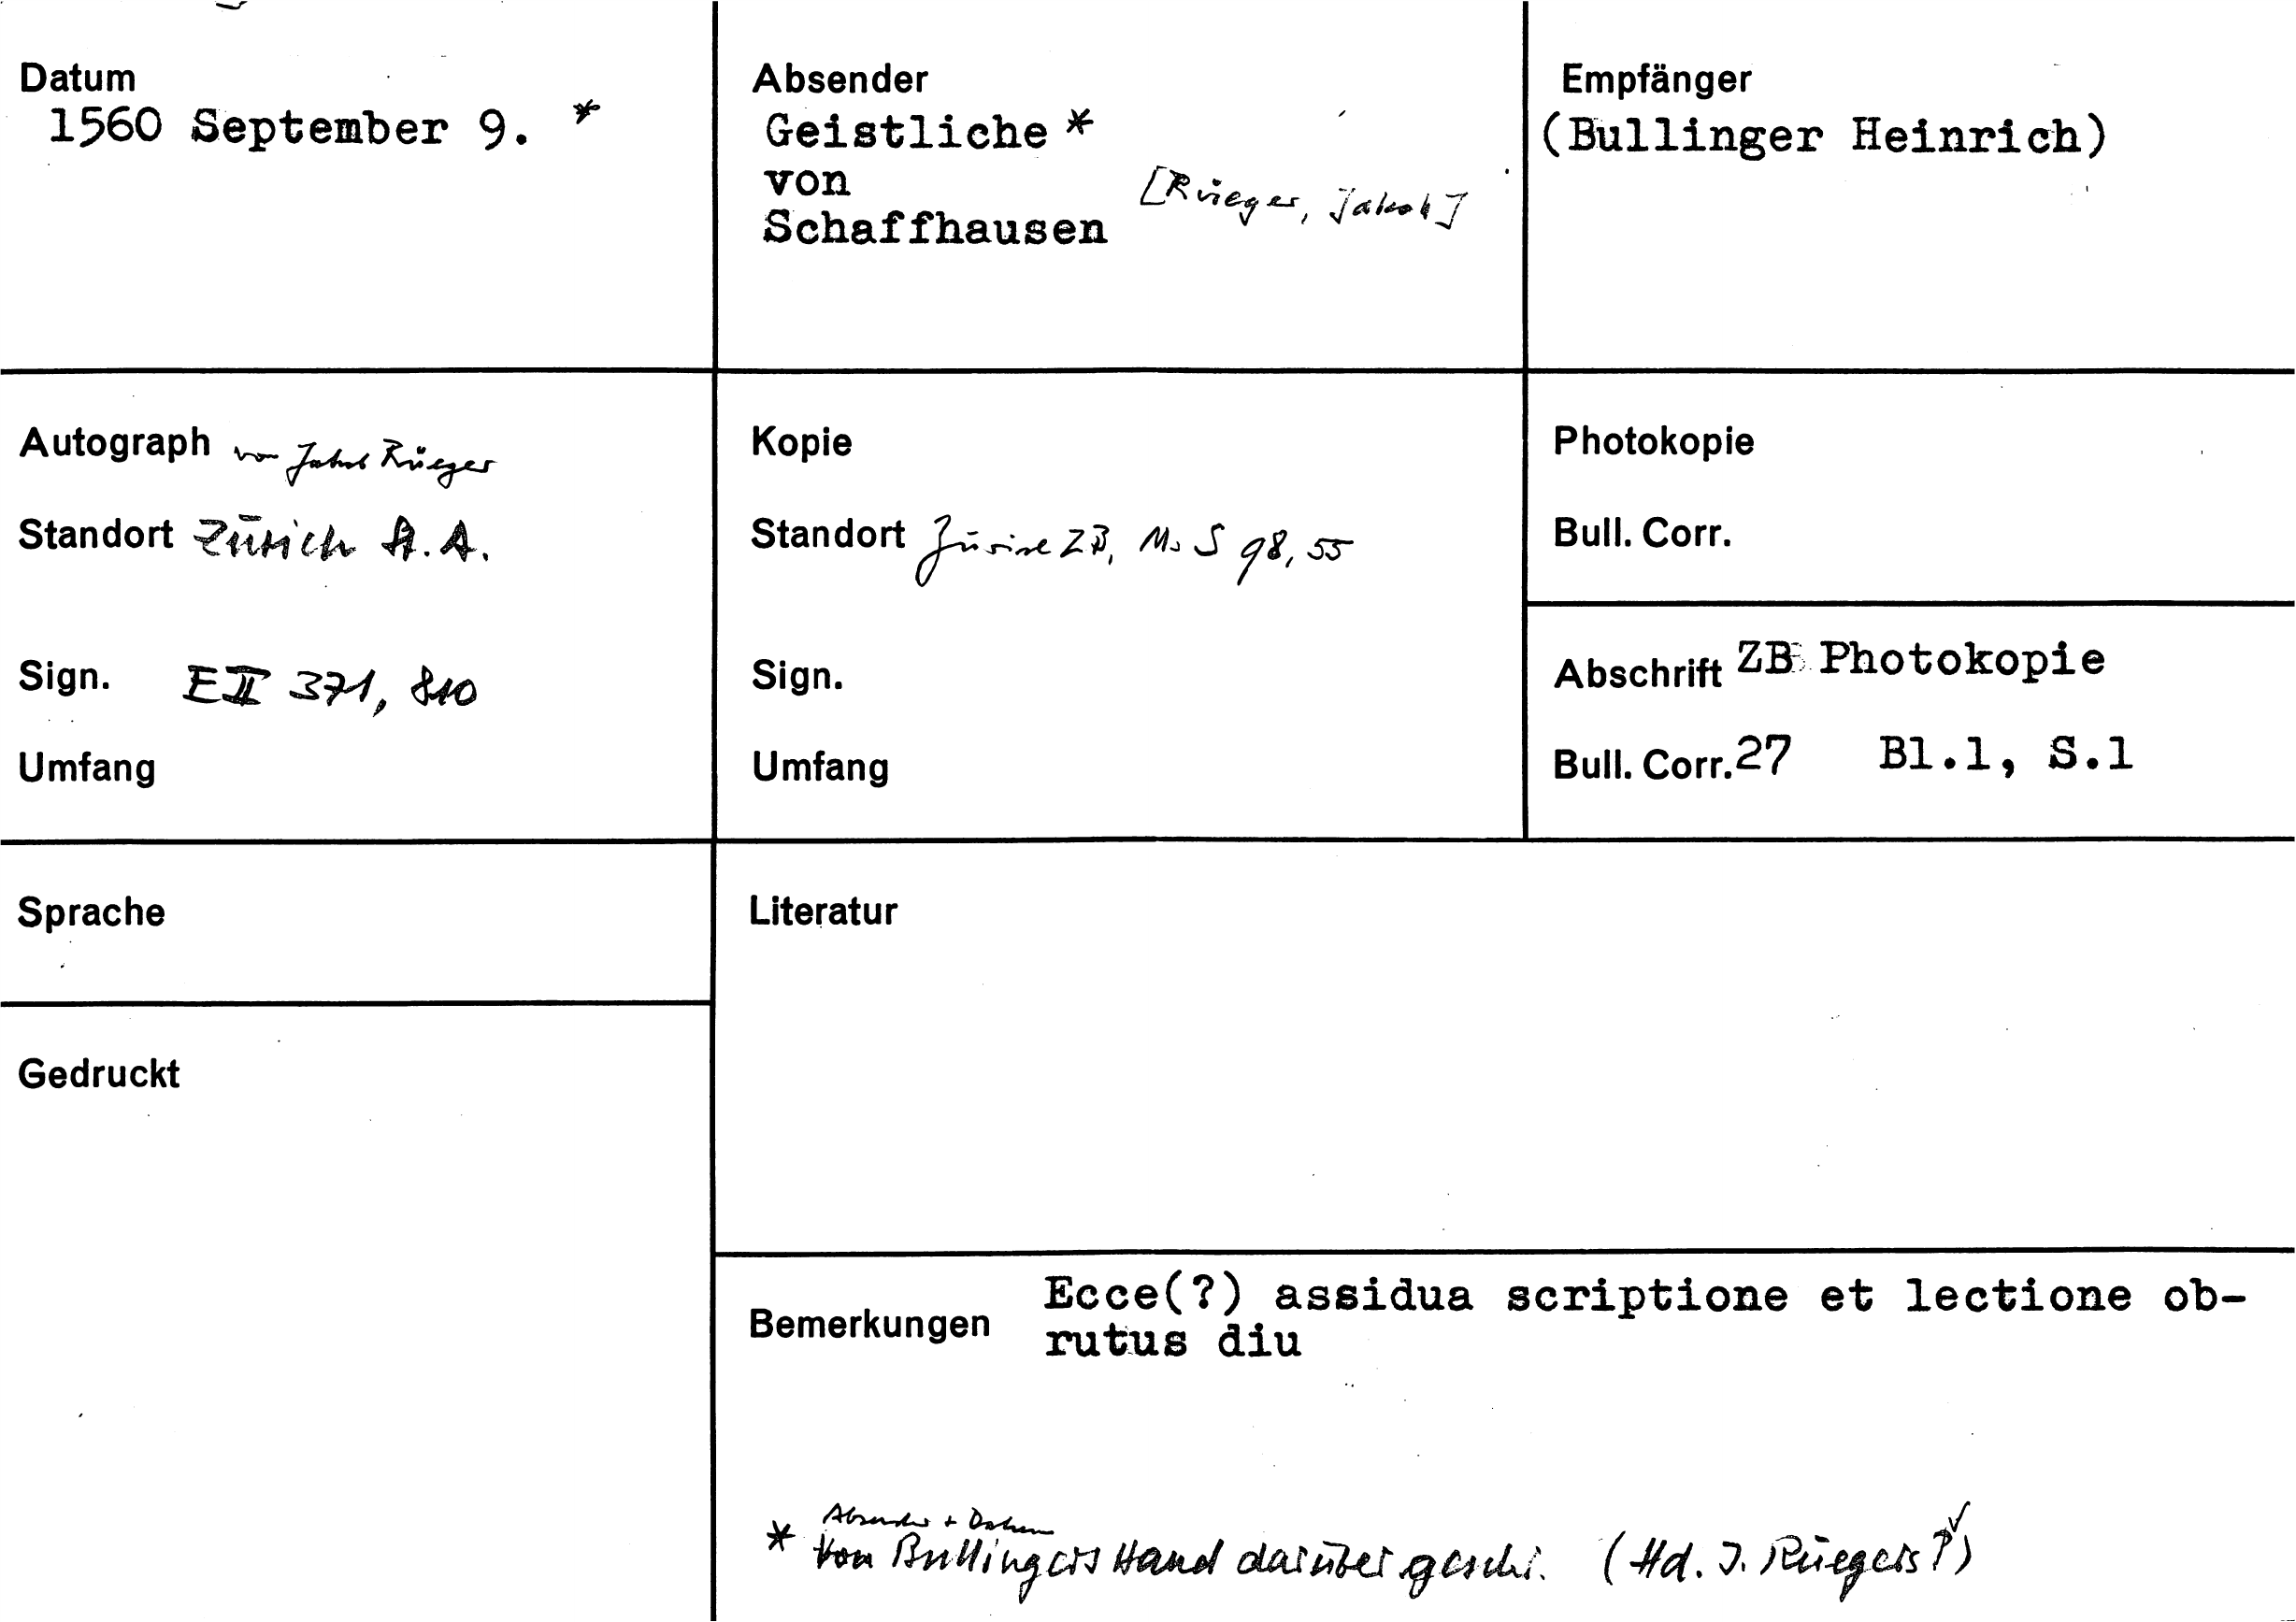 Datum
1560 September 9. *
Absender
Geistliche *
von
Schaffhausen
[Rüeger, Jakob]
Empfänger
(Bullinger Heinrich)
Autograph von Jakob Rüeger
Standort Zürich St.A.
Sign. E II 371, 810
Umfang
Kopie
Standort Zürich ZB, Ms S 98, 55
Sign.
Umfang
Photokopie
Bull. Corr.
Abschrift ZB Photokopie
Bull. Corr. 27 Bl.1, S.1
Sprache
Gedruckt
Literatur
Bemerkungen
Ecce(?) assidua scriptione et lectione ob-
rutus diu
Absender + Datum
* von Bullingers Hand darüber geschr. (Hd. J. Rüegers ? √)